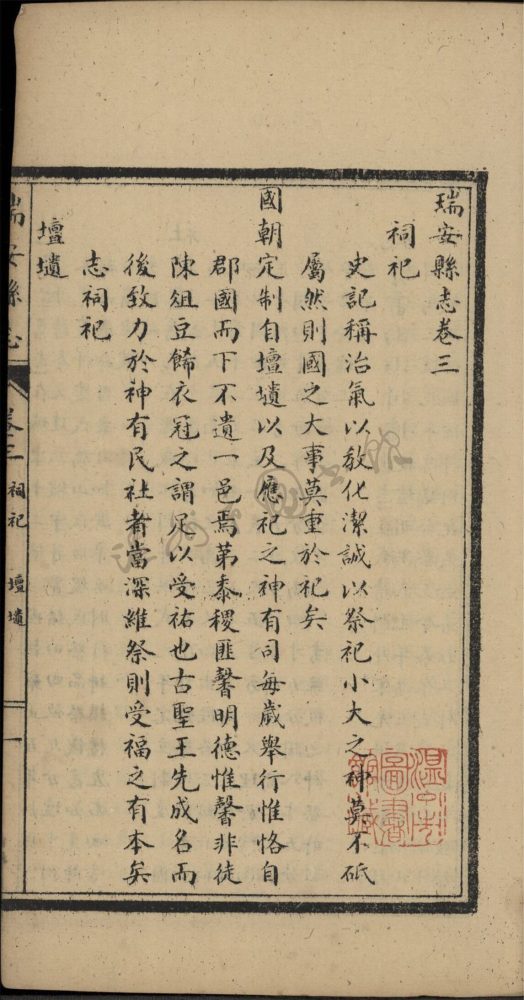 瑞安縣志卷三
祠祀
史記稱治氣以教化潔誠以祭祀小大之神莫不砥
屬然則國之大事莫重於祀矣
國朝定制自壇壝以及應祀之神有司每歲舉行惟恪自
郡國而下不遺一邑焉第黍稷匪馨明德惟馨非徒
陳俎豆餙衣冠之謂足以受祐也古聖王先成名而
後致力於神有民社者當深維祭則受福之有本矣
志祠祀
壇壝
瑞安縣志
卷三 祠祀 壇壝 一